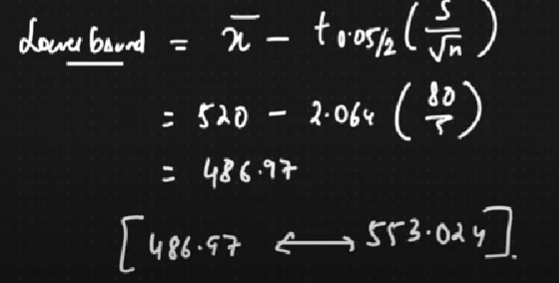 Lower bound = x̄ - t0.05/2 (S/√n)
= 520 - 2.064 (80/5)
= 486.97
[486.97 ⟷ 553.024].